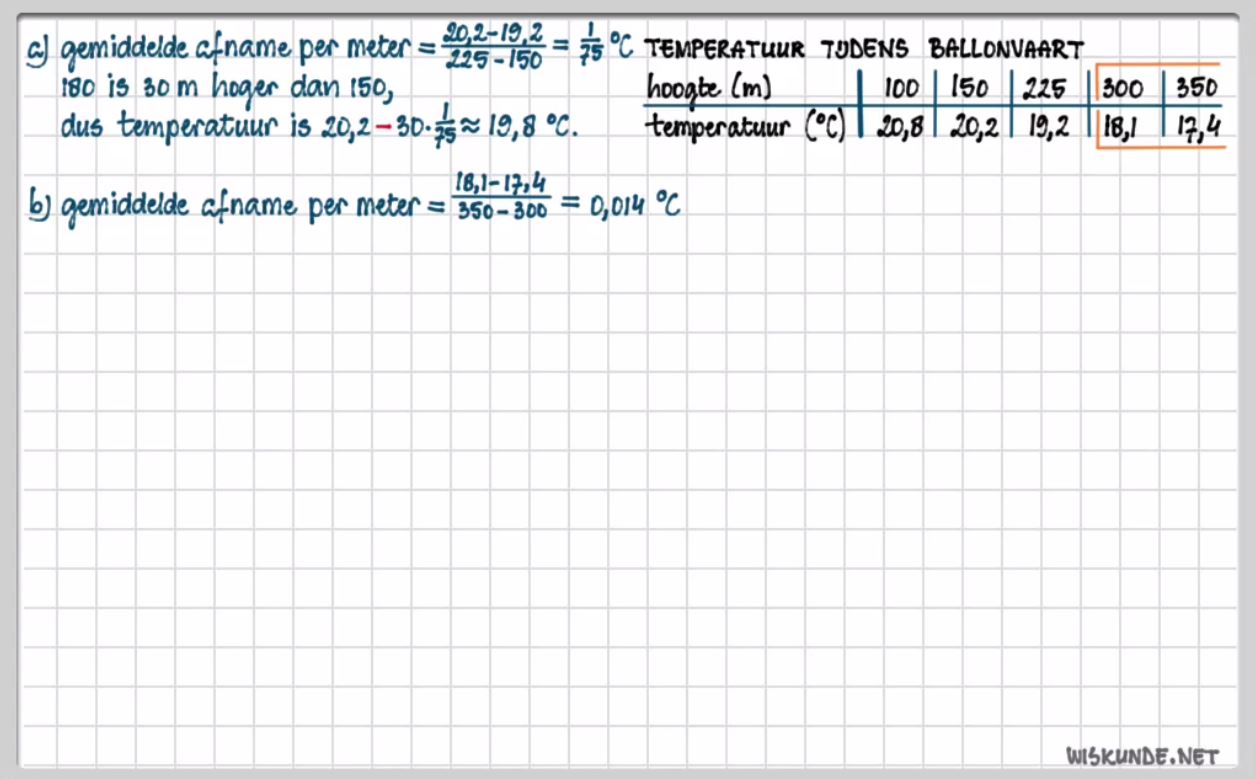 a) gemiddelde afname per meter = (20,2-19,2)/(225-150) = 1/75 °C
180 is 30 m hoger dan 150,
dus temperatuur is 20,2-30·1/75 ≈ 19,8 °C.
b) gemiddelde afname per meter = (18,1-17,4)/(350-300) = 0,014 °C
TEMPERATUUR TIJDENS BALLONVAART
hoogte (m) 100 150 225 300 350
temperatuur (°C) 20,8 20,2 19,2 18,1 17,4
WISKUNDE.NET